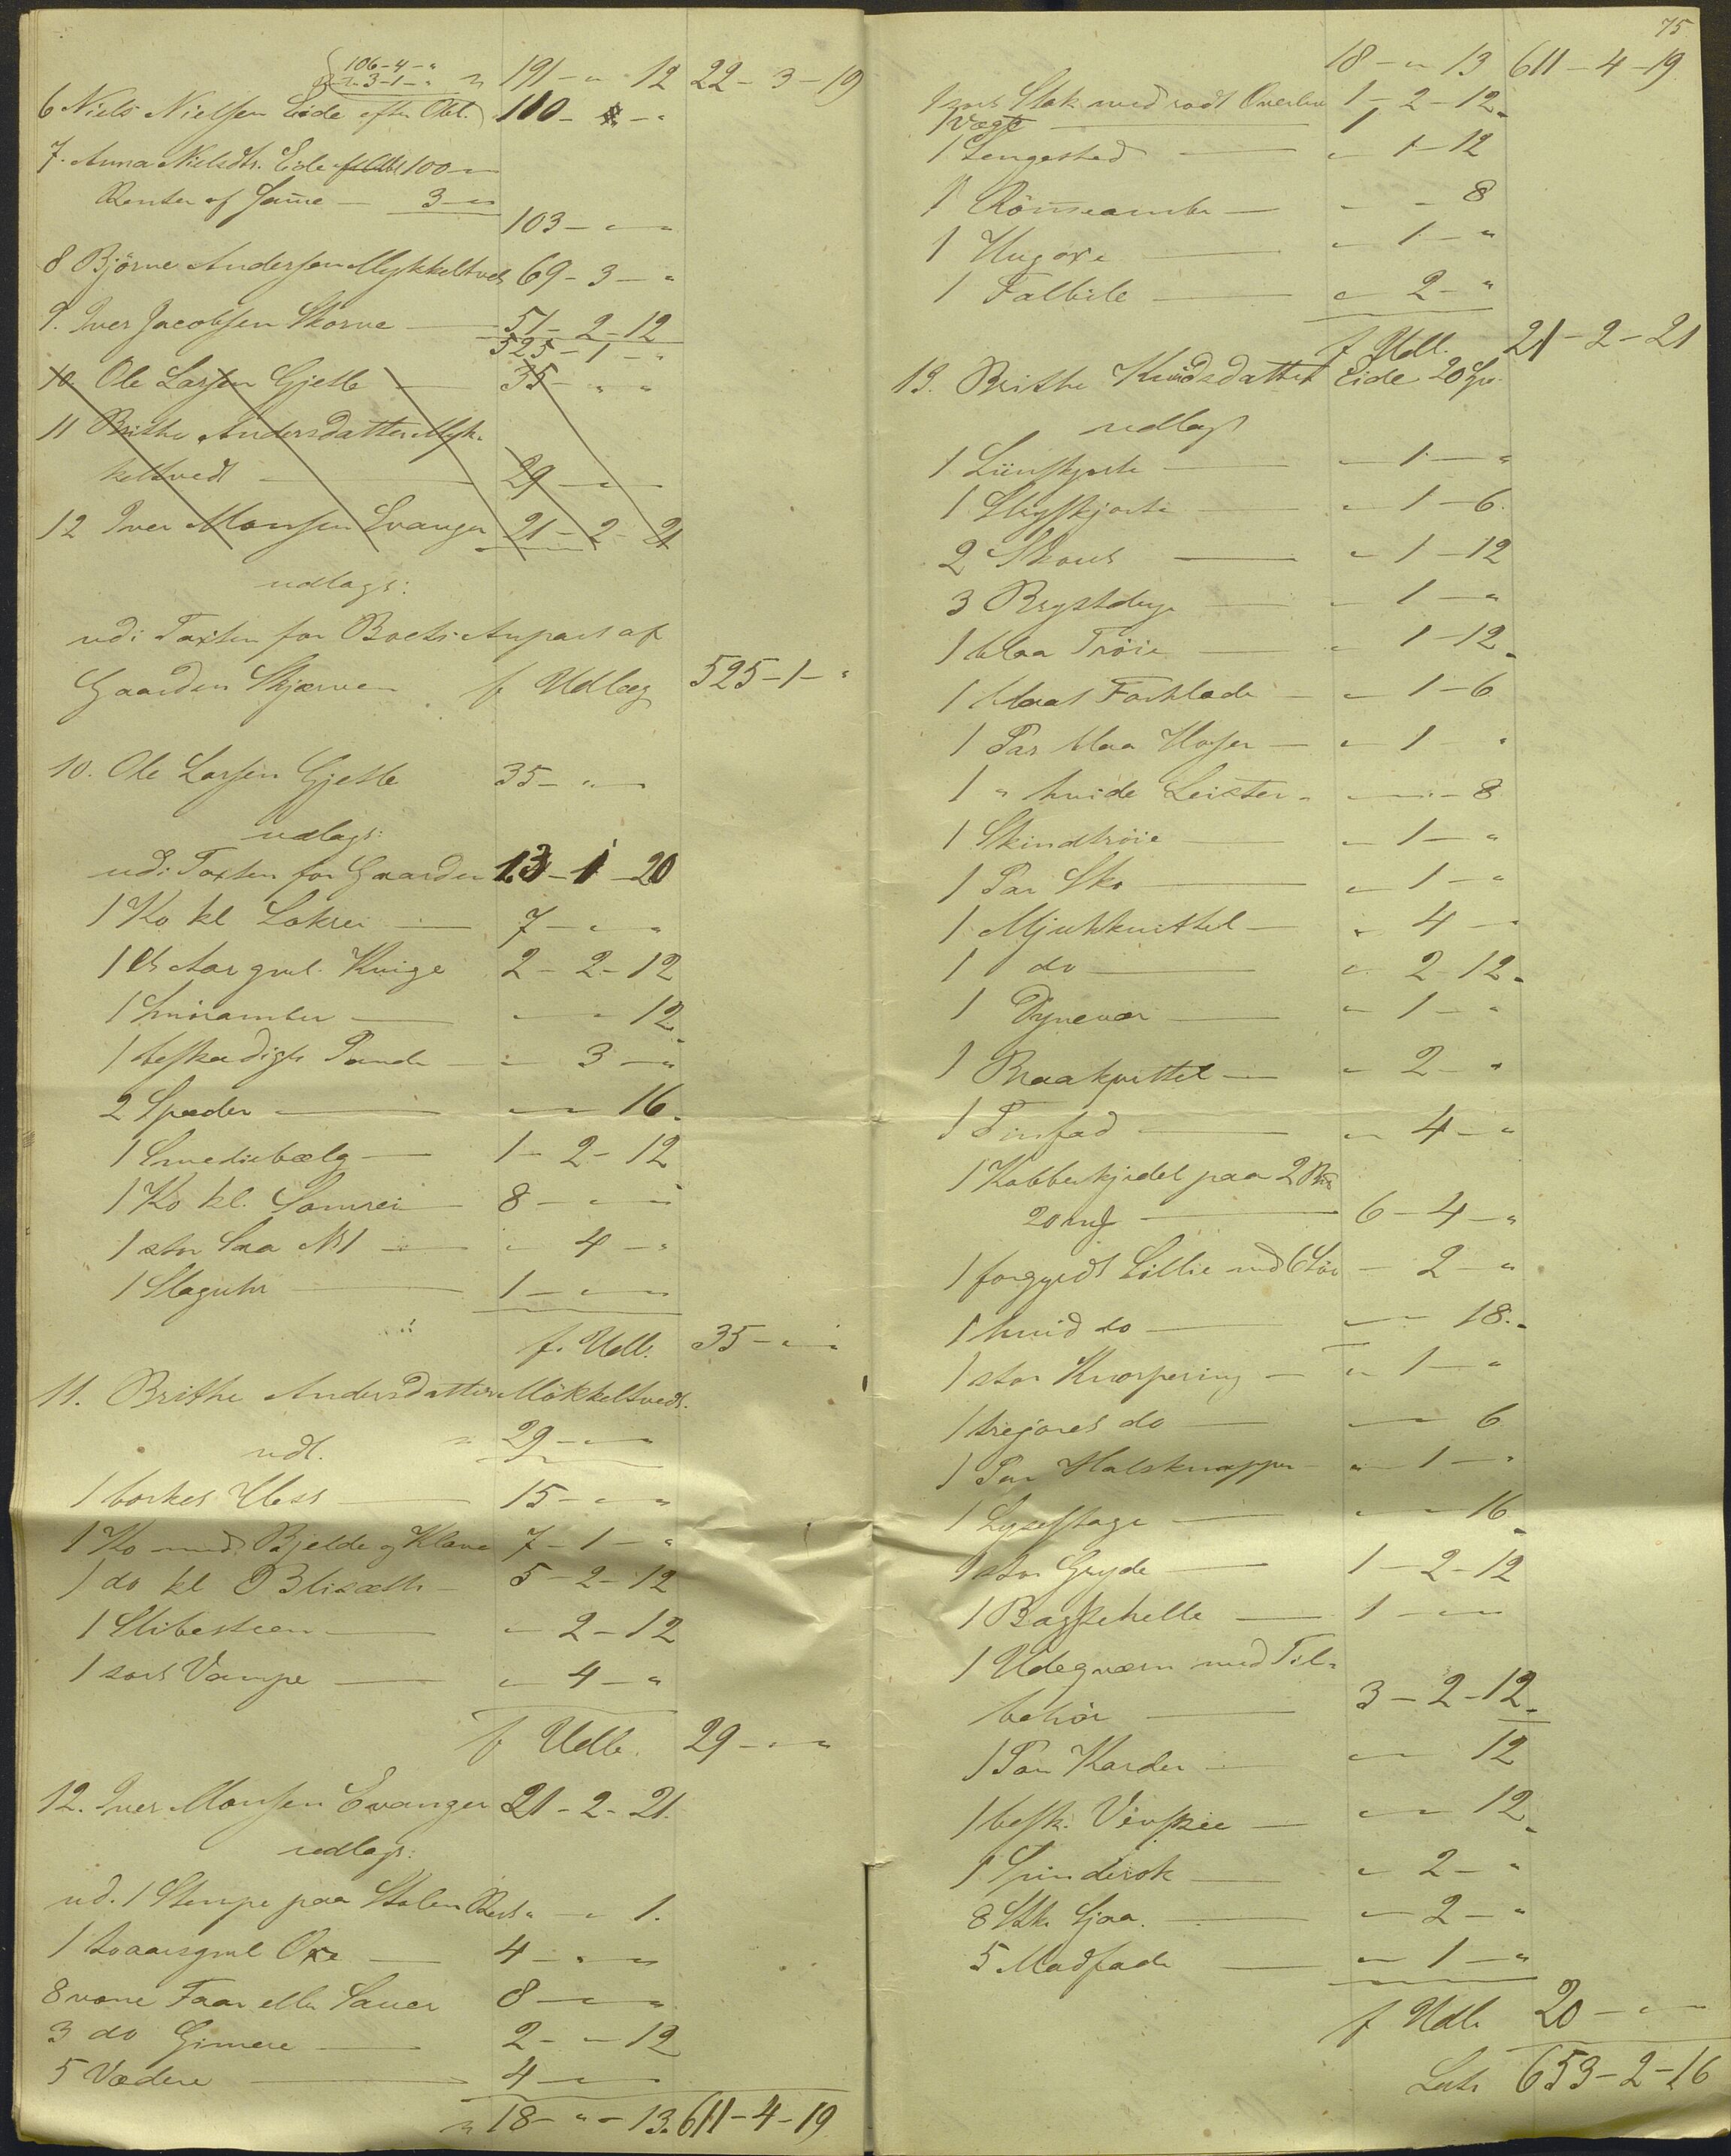 106-4-"
3-1-" 191-"-12 22-3-19
6 Niels Nielsen Eide efter Obl. 110-"-"
7. Anna Nielsdtr. Eide 100--
Renter af Same - 3--
103---
8 Björne Andersen Mykkeltvedt 69-3-"
9. Iver Jacobsen Skorve - 51-2-12
525-1-"
10. Ole Larsen Gjelle - 35-"-"
11 Brithe Andersdatter Myk-
keltvedt - 29---
12 Iver Monsen Evanger 21-2-21
udlagt:
udi Taxten for Boets Anpart af
Gaarden Skjerven f Udlæg 525-1-"
10. Ole Larsen Gjelle 35-"-
udlagt:
udi Taxten for Gaarden 13-1-20
1 Ko kl Lokrei - 7-"-"
1 et Aar gml. Kvige 2-2-12
1 Smörambar - "-"-12
1 beskadigt Pande - "-3-"
2 Spader - "-"-16
1 Smediebælg - 1-2-12
1 Ko kl. Somrei - 8-"-"
1 stor Saa N1 - "-4-"
1 Slaguhr - 1-"-"
f. Udl. 35-"-"
11. Brithe Andersdatter Mökkeltvedt.
udl. 29-"-
1 borket Hest - 15-"-"
1 Ko med Bjelde og Klave 7-1-"
1 do kl Blisæth - 5-2-12
1 Slibesteen - "-2-12
1 sort Vampe - "-4-"
f Udl. 29-"-"
12. Iver Monsen Evanger 21-2-21.
udlagt:
ud. 1 Stempe paa Stolen Rest "-"-1.
1 toaarsgml Oxe - 4-"-"
8 vone Faar eller Sauer 8-"-"
3 do Gimere - 2-"-12
5 Vædere - 4-"-
18-"-13. 611-4-19
75
18-"-13 611-4-19
1 sort Stak med rødt Overliv 1-2-12
1 Vægt - 1
1 Sengested - "-1-12
1 Römmeambar - "-"-8
1 Hugøxe - "-1-"
1 Falbile - "-2-"
f Udl. 21-2-21
13. Brithe Knudsdatter Eide 20 Spd.
udlagt
1 Liinskjorte - "-1-"
1 Strieskjorte - "-1-6
2 Skout - "-1-12
3 Brystduge - "-1-"
1 blaa Tröie - "-1-12
1 blaat Forklæde - "-1-6
1 Par blaa Hoser - "-1-"
1 " hvide Leister - "-"-8
1 Skindtröie - "-1-"
1 Par Sko - "-1-"
1 Mjukkvittel - "-4-"
1 do - "-2-12
1 Dynevær - "-1-"
1 Braakvittel - "-2-"
1 Tinfad - "-4-"
1 Kobberkjedel paa 2
20 - 6-4-"
1 forgyldt Sillie med 6 Löv - 2-"
1 hvid do - "-"-18.
1 stor Knorpering - "-1-"
1 do - "-"-6
1 Par Halsknapper - "-1-"
1 Lysestage - "-"-16
1 stor Gryde - 1-2-12
1 Bagstehelle - 1-"-"
1 Udegværn med Til-
behör - 3-2-12
1 Par Karder - "-"-12
1 besk. - "-"-12
1 Spinderok - "-2-"
8 Stk. Ljaa. - "-2-"
5 Madfade - "-1-"
f Udl. 20-"-
Lats 653-2-16